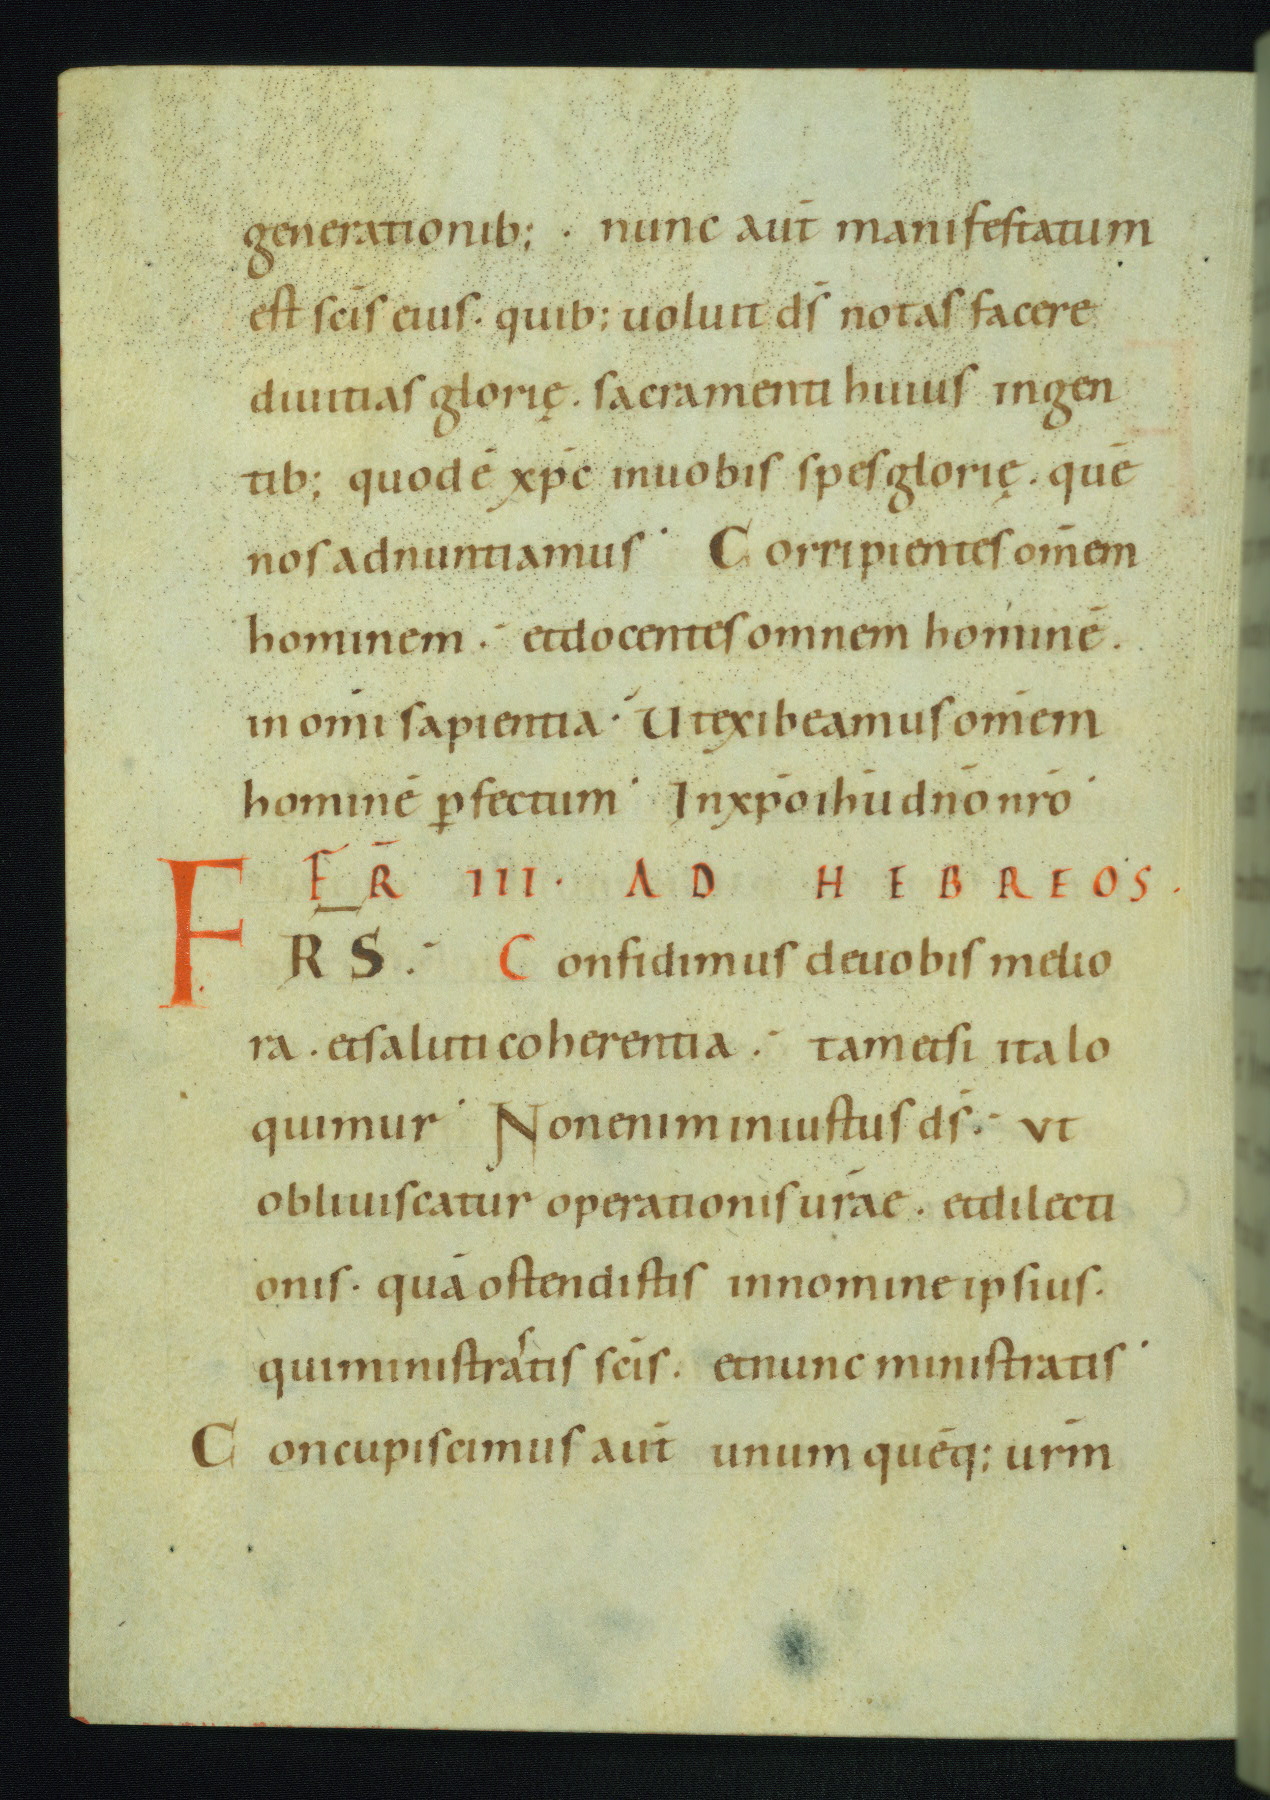 generationib; · nunc aut̄ manifestatum
est sc̄is eius. quib; uoluit d̄s notas facere
diuitias glorię. sacramenti huius ingen
tib; quod ē xp̄c inuobis spes glorię. quē
nos adnuntiamus· Corripientes om̄em
hominem. etdocentes omnem hominē.
in om̄i sapientia. Ut exibeamus om̄em
hominē ꝑfectum· Inxp̄o ih̄u dn̄o nr̄o·
FER̄ III. AD HEBREOS.
FRS. Confidimus deuobis melio
ra. etsaluti coherentia. tametsi ita lo
quimur· Nonenim iniustus d̄s. ut
obliuiscatur operationis ur̄ae. etdilecti
onis. quā ostendistis innomine ipsius.
quiministrastis sc̄is. etnunc ministratis·
Concupiscimus aut̄ unum quēq; ur̄m